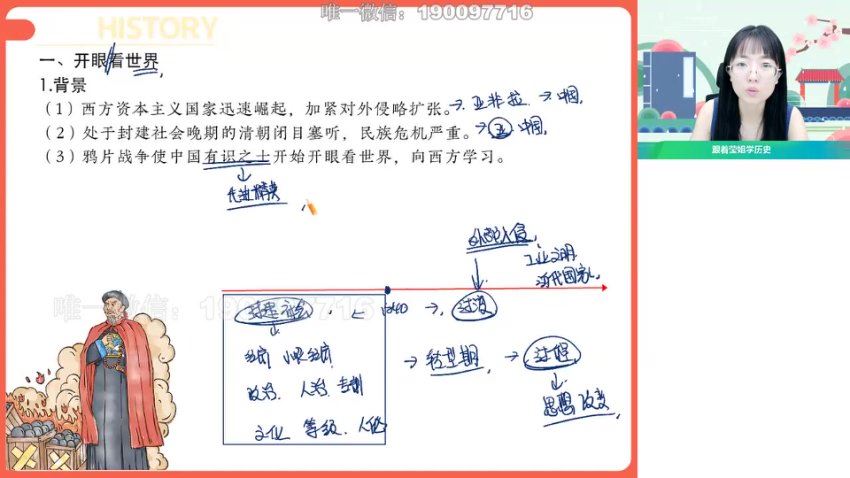 唯一微信：190097716
HISTORY
一、开眼看世界
1.背景
（1）西方资本主义国家迅速崛起，加紧对外侵略扩张。→亚非拉→中国
（2）处于封建社会晚期的清朝闭目塞听，民族危机严重。→中国
（3）鸦片战争使中国有识之士开始开眼看世界，向西方学习。
跟着莹姐学历史
外部入侵
工业文明
近代国家
唯一微信：190097716
封建社会 ← 1840 → 过渡
经济 小农经济
→ 转型期 → 过程
政治 人治 专制
思想改变
文化 等级 人伦